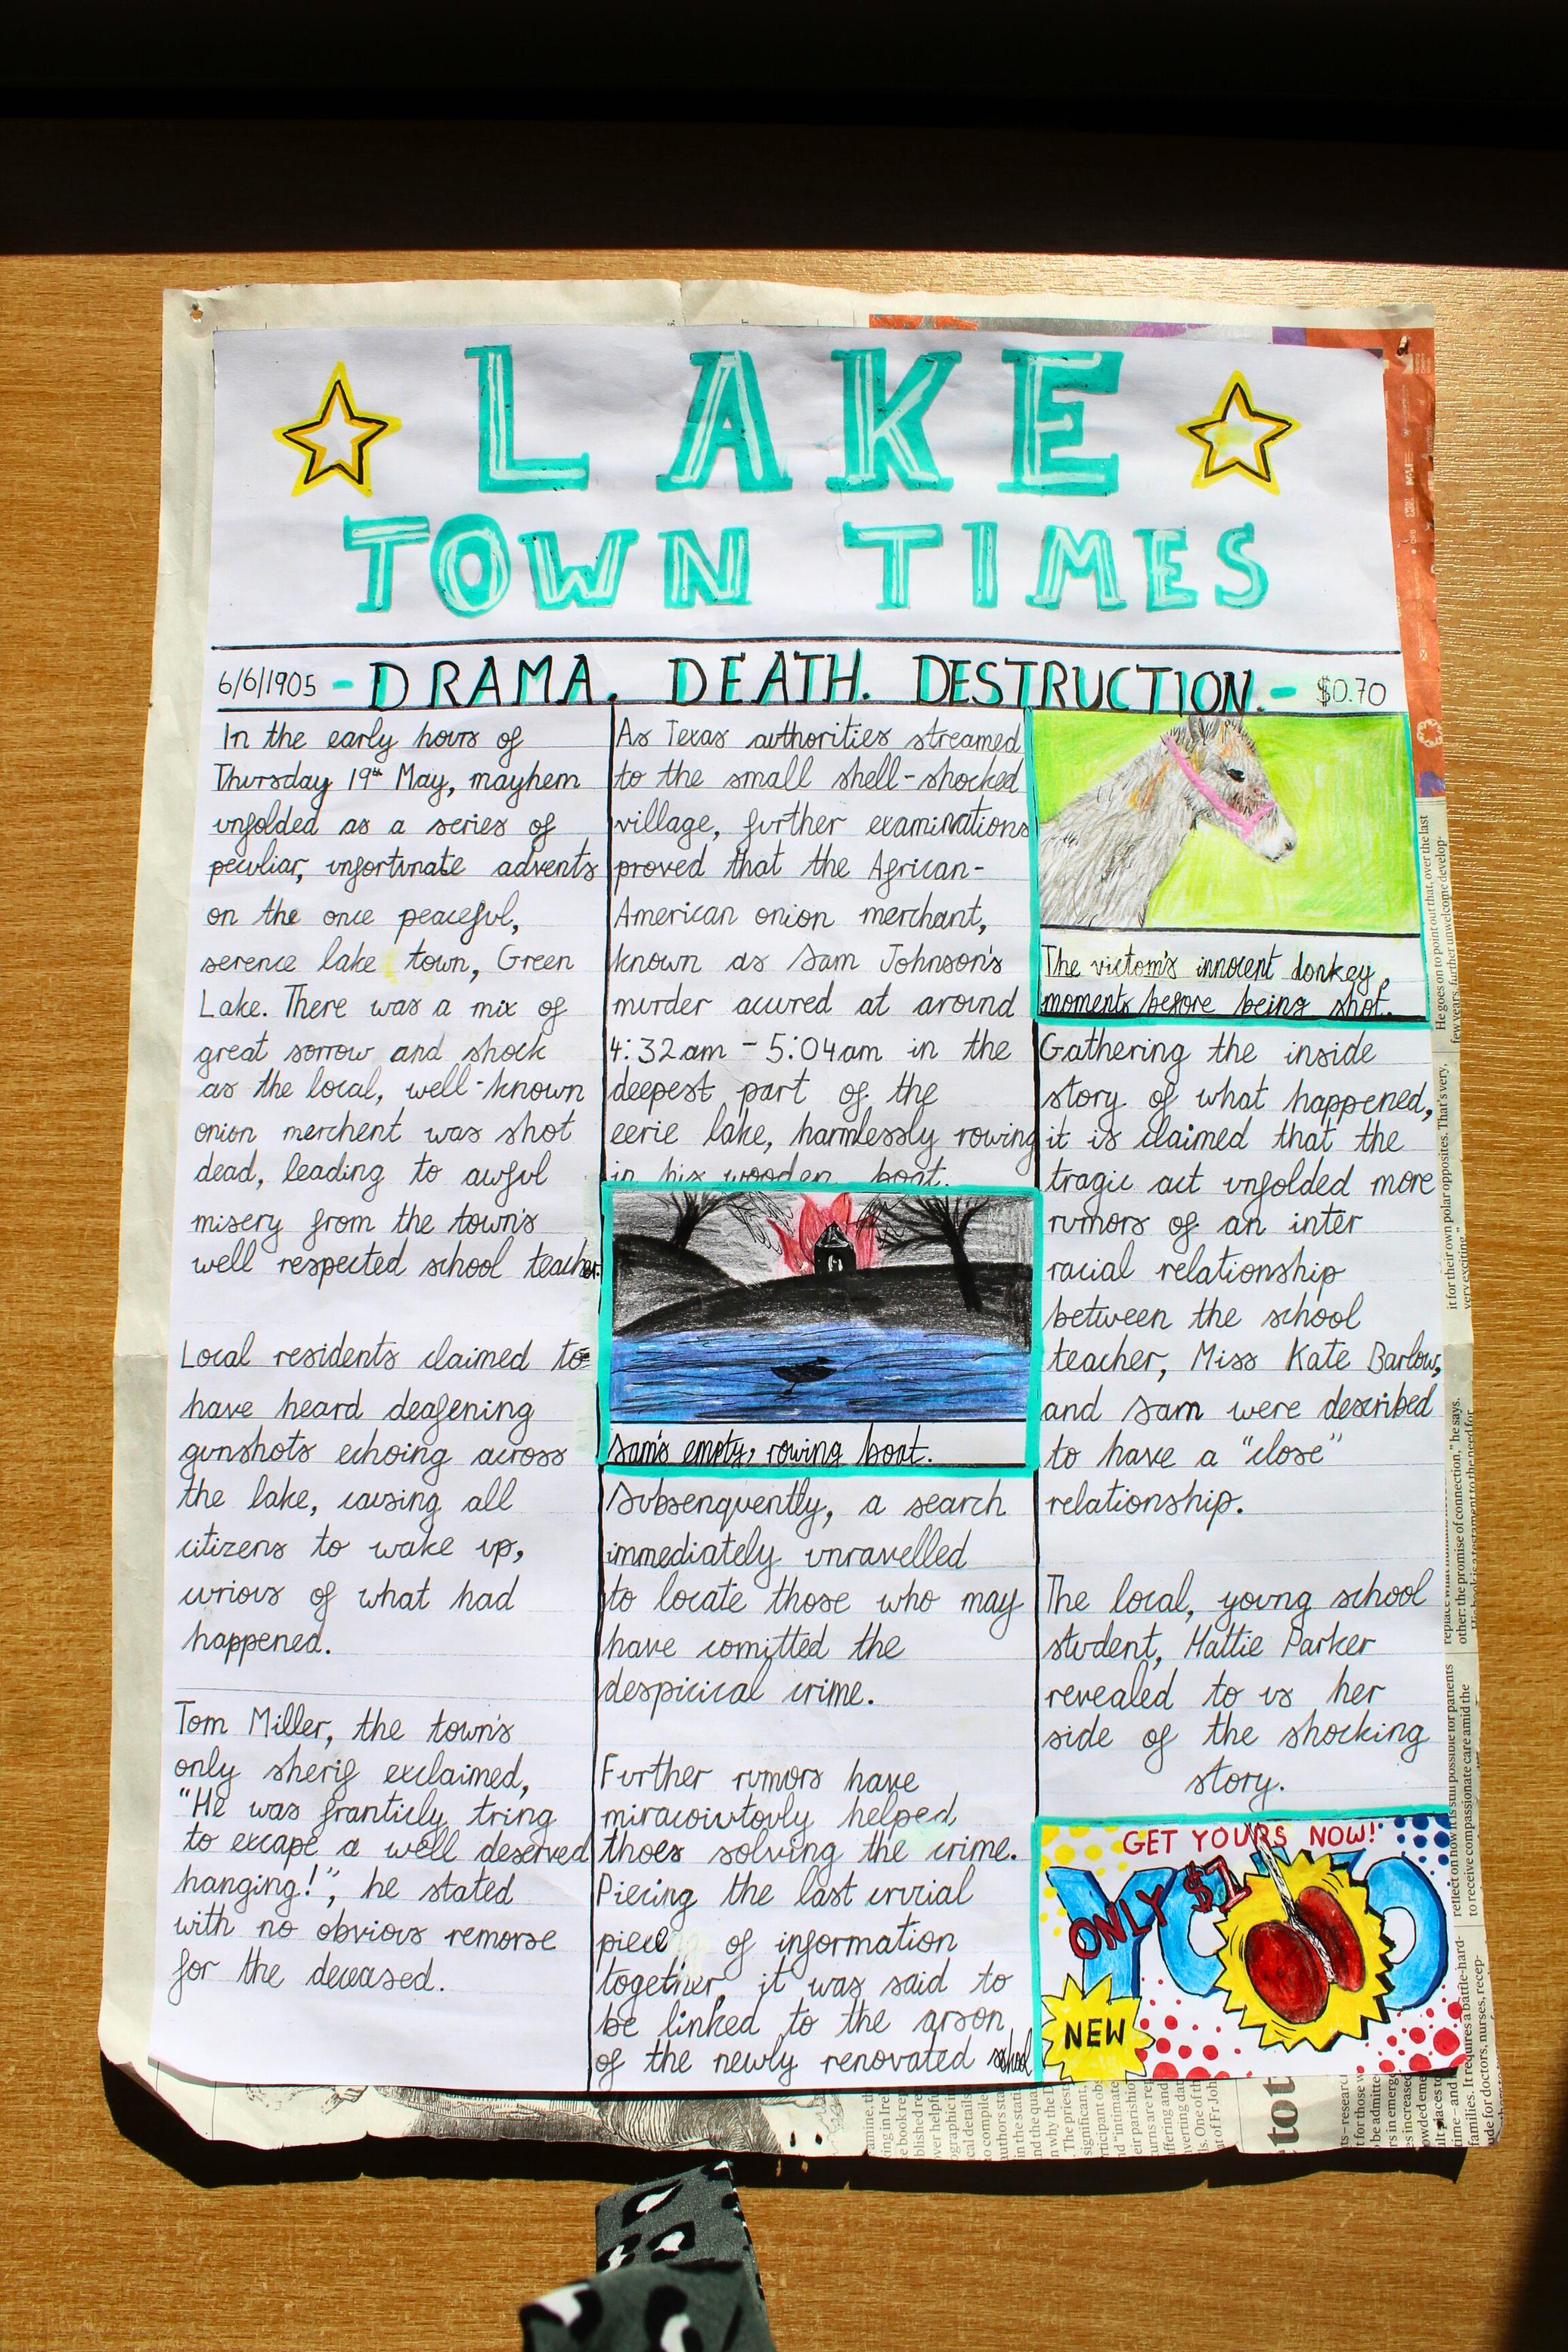 LAKE
TOWN TIMES
6/6/1905 - DRAMA. DEATH. DESTRUCTION. - $0.70
In the early hours of
Thursday 19th May, mayhem
unfolded as a series of
peculiar, unfortunate advents
on the once peaceful,
serence lake town, Green
Lake. There was a mix of
great sorrow and shock
as the local, well-known
onion merchent was shot
dead, leading to awful
misery from the town's
well respected school teacher.
Local residents claimed to
have heard deafening
gunshots echoing across
the lake, causing all
citizens to wake up,
curious of what had
happened.
Tom Miller, the town's
only sherif exclaimed,
"He was franticly tring
to excape a well deserved
hanging!", he stated
with no obvious remorse
for the deceased.
As Texas authorities streamed
to the small shell-shocked
village, further examinations
proved that the African-
American onion merchant,
known as Sam Johnson's
murder accured at around
4:32am - 5:04am in the
deepest part of the
eerie lake, harmlessly rowing
in his wooden boat.
Sam's empty, rowing boat.
Subsenquently, a search
immediately unravelled
to locate those who may
have comitted the
despicical crime.
Further rumors have
helped
thoes solving the crime.
Piecing the last crucial
piece of information
together, it was said to
be linked to the arson
of the newly renovated school
The victom's innocent donkey,
moments before being shot.
Gathering the inside
story of what happened,
it is claimed that the
tragic act unfolded more
rumors of an inter
racial relationship
between the school
teacher, Miss Kate Barlow,
and Sam were described
to have a "close"
relationship.
The local, young school
student, Hattie Parker
revealed to us her
side of the shocking
story.
GET YOURS NOW!
YOYO
ONLY $1
NEW